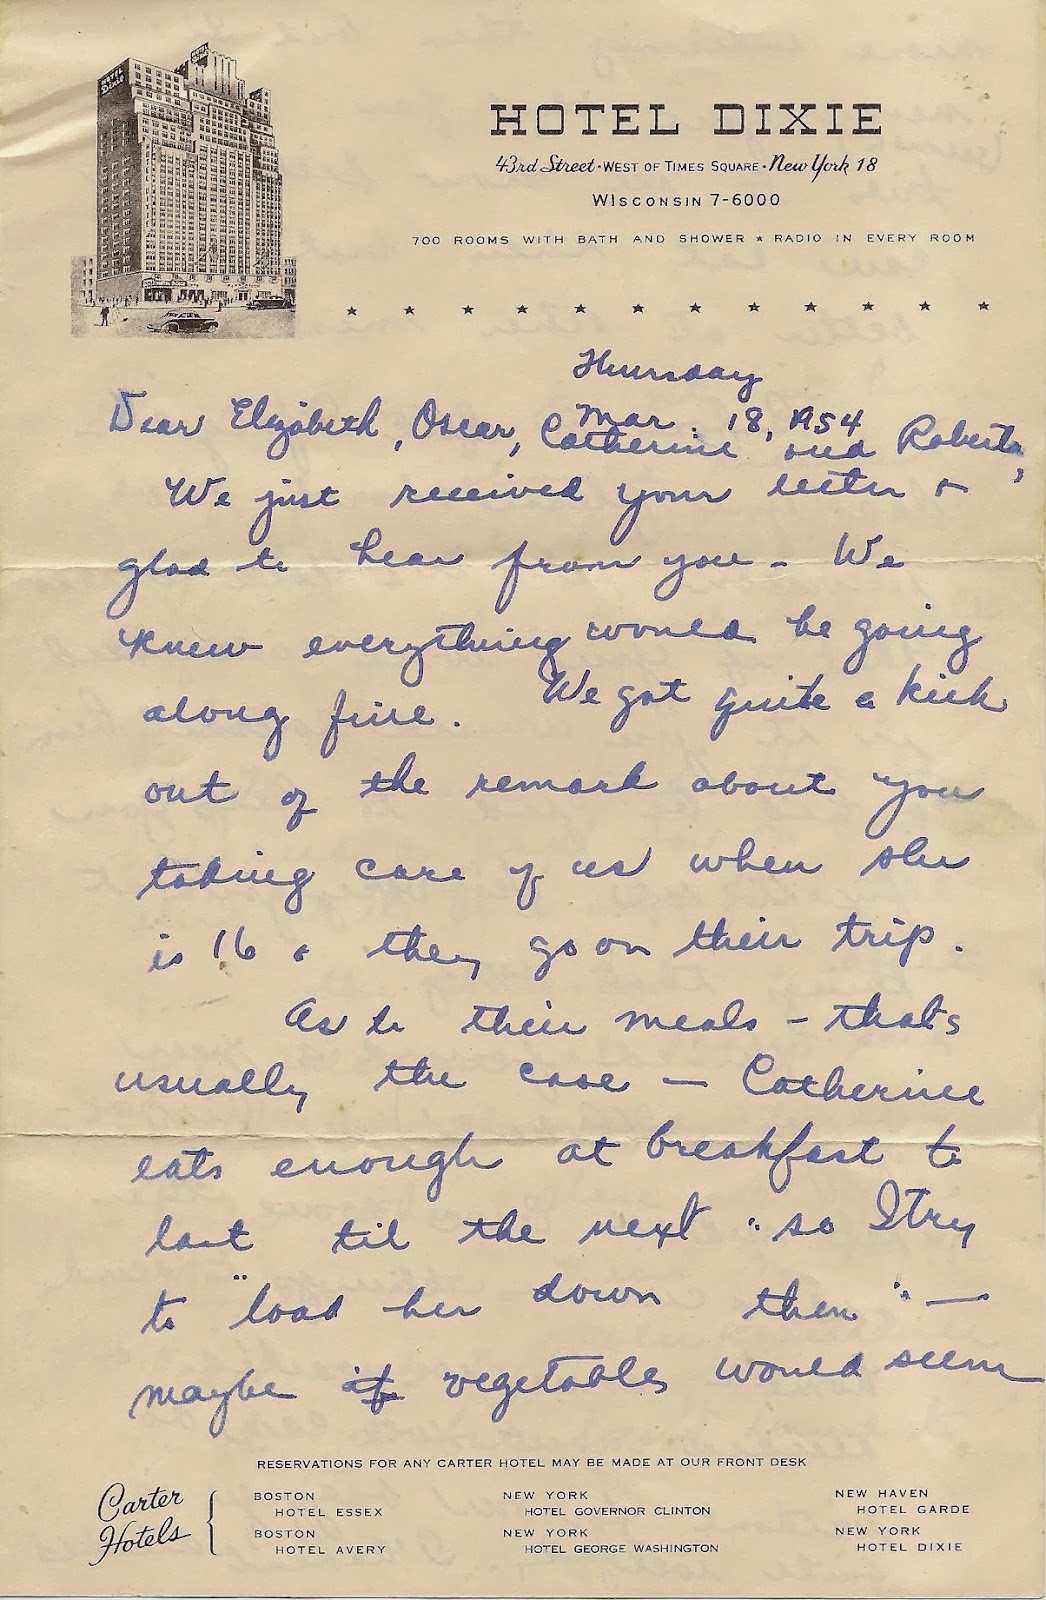 HOTEL DIXIE
43rd Street • WEST OF TIMES SQUARE • New York 18
WISCONSIN 7-6000
700 ROOMS WITH BATH AND SHOWER ★ RADIO IN EVERY ROOM
Thursday
Mar. 18, 1954
Dear Elizabeth, Oscar, Catherine and Roberta,
We just received your letter &
glad to hear from you - We
knew everything would be going
along fine. We got quite a kick
out of the remark about you
taking care of us when she
is 16 & they go on their trip.
As to their meals - that's
usually the case — Catherine
eats enough at breakfast to
last til the next " so I try
to "load her down then" —
maybe if vegetables would seem
RESERVATIONS FOR ANY CARTER HOTEL MAY BE MADE AT OUR FRONT DESK
Carter Hotels
BOSTON
HOTEL ESSEX
BOSTON
HOTEL AVERY
NEW YORK
HOTEL GOVERNOR CLINTON
NEW YORK
HOTEL GEORGE WASHINGTON
NEW HAVEN
HOTEL GARDE
NEW YORK
HOTEL DIXIE